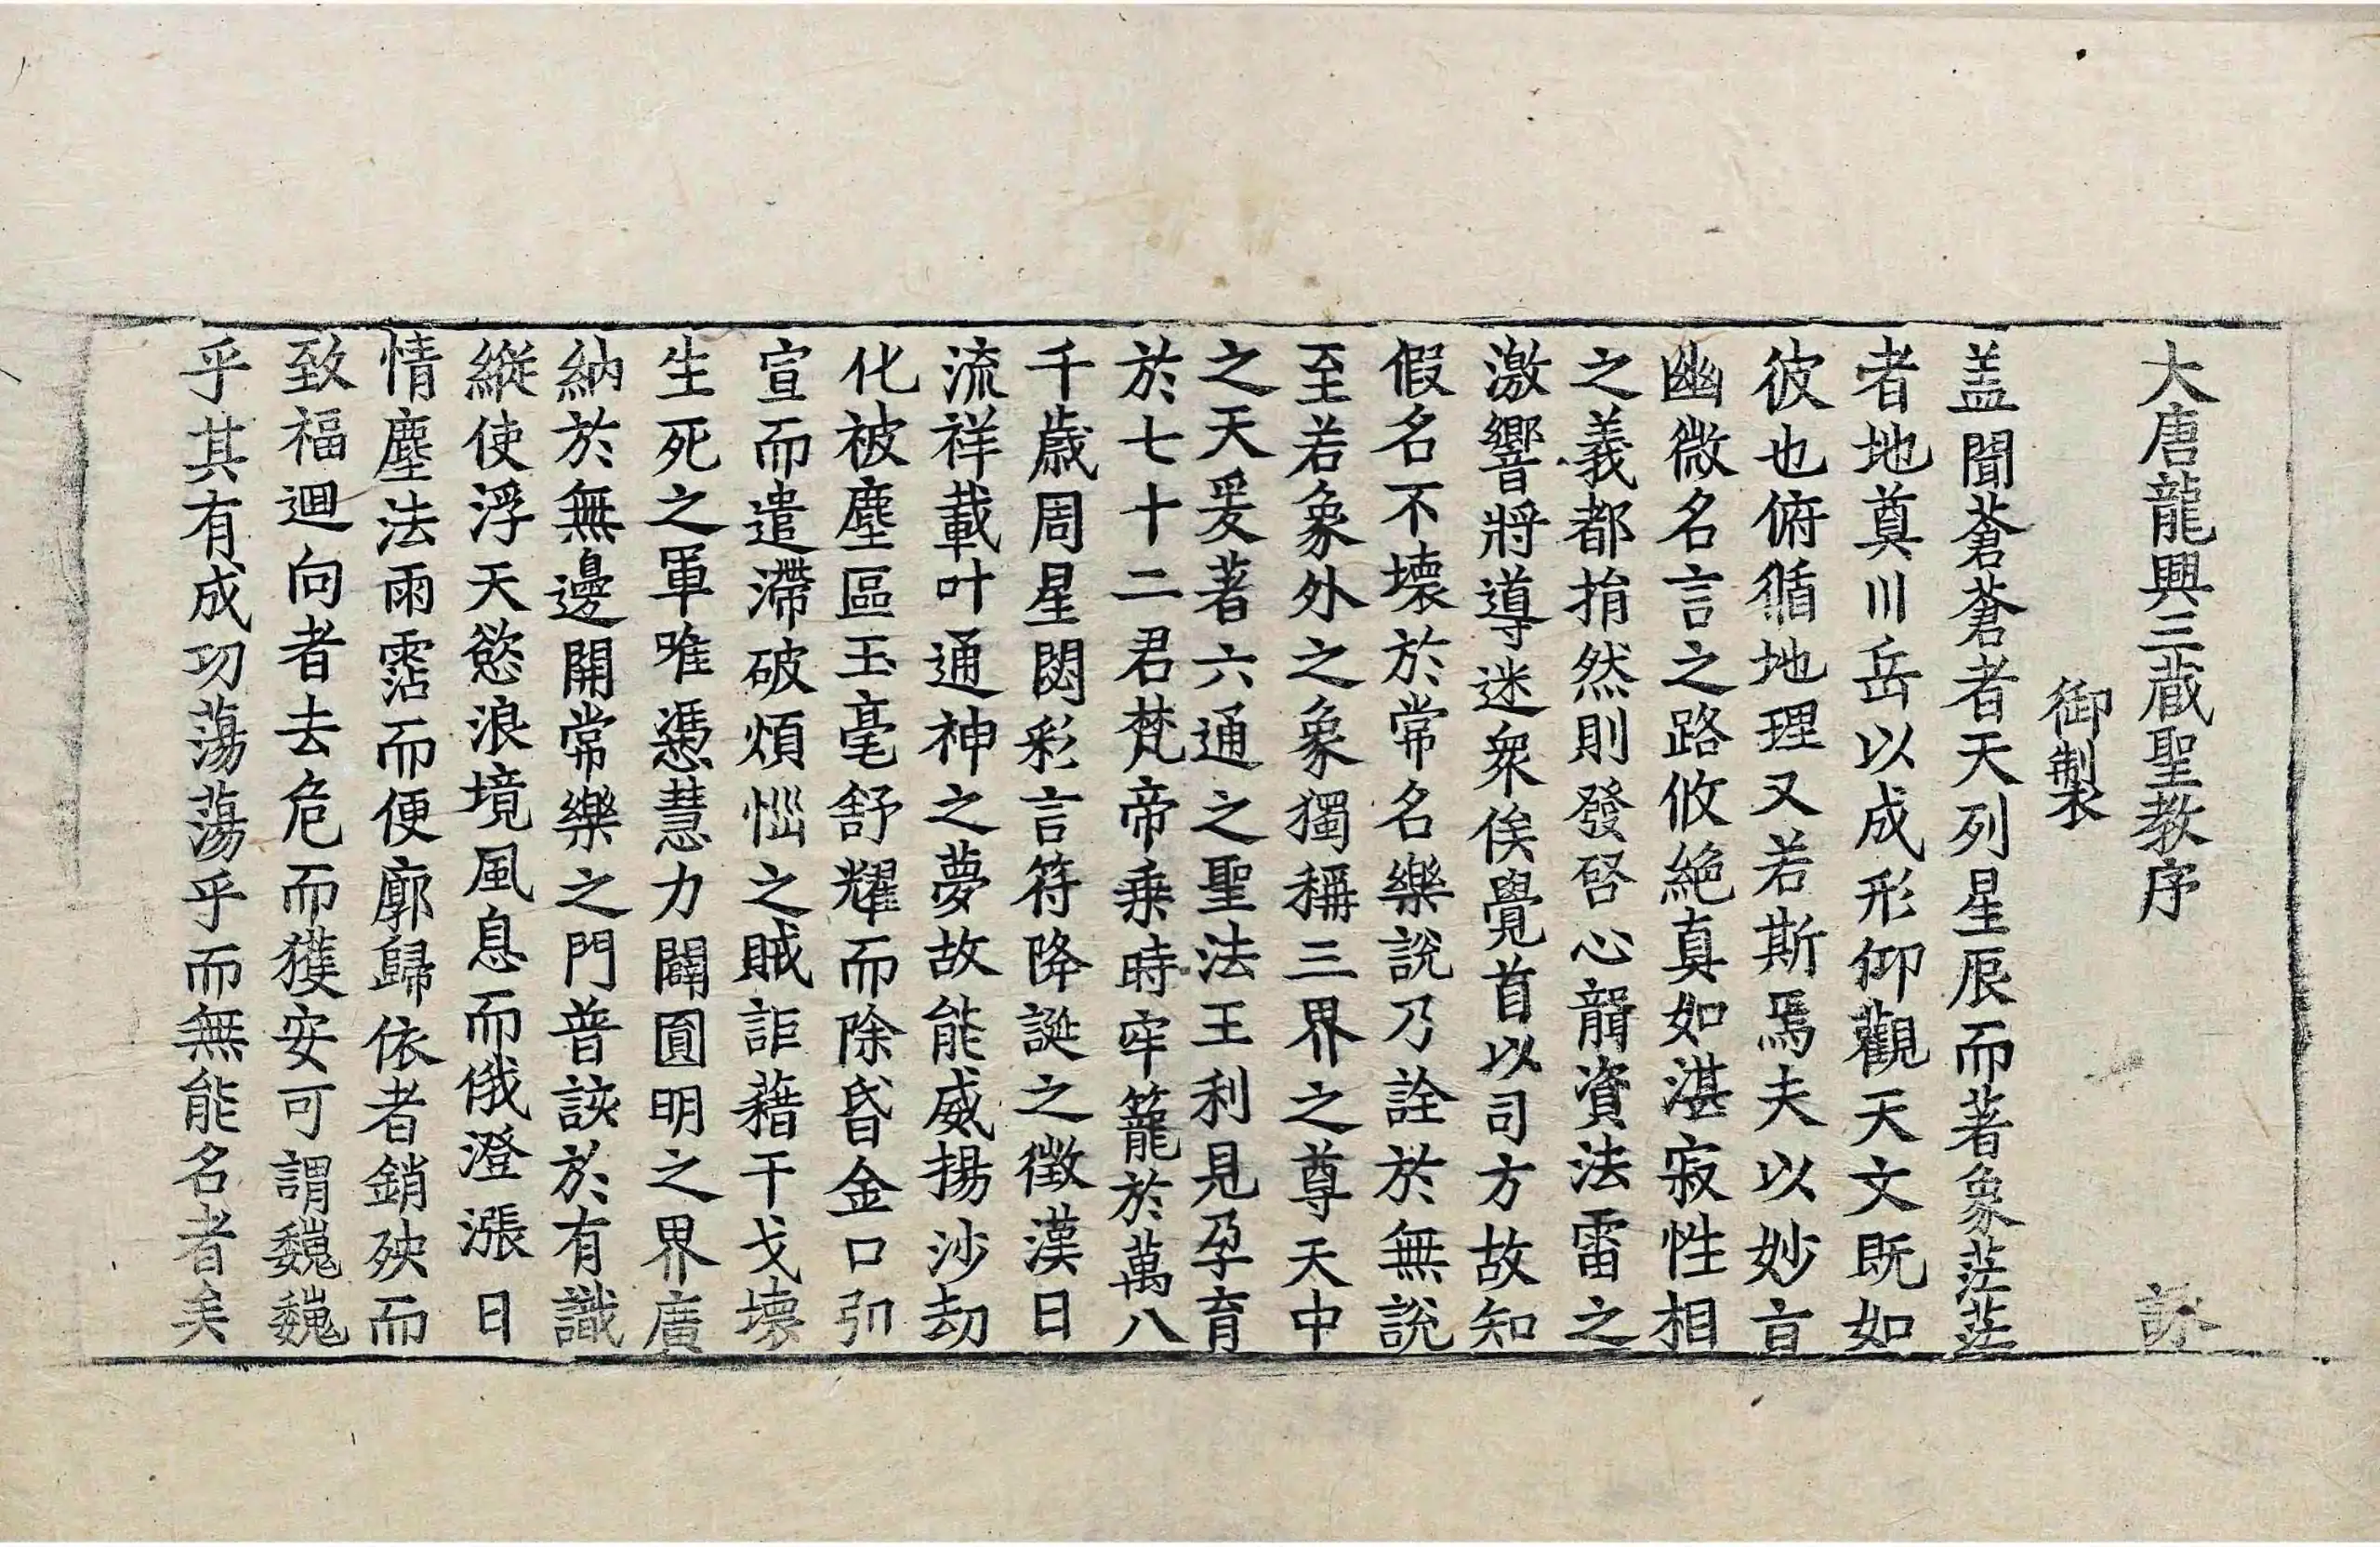 大唐龍興三蔵聖教序 詠
御製
盖聞蒼蒼者天列星辰而著象茫茫
者地奠川岳以成形仰觀天文既如
彼也俯循地理又若斯焉夫以妙㫖
幽微名言之路攸絶真如湛寂性相
之義都捐然則發啓心聾資法雷之
激響將導迷衆俟覺首以司方故知
假名不壊於常名樂說乃詮於無說
至若象外之象獨稱三界之尊天中
之天爰著六通之聖法王利見孕育
於七十二君梵帝乗時牢籠於萬八
千歳周星閟彩言符降誕之徵漢日
流祥載叶通神之夢故能威揚沙劫
化被塵區玉毫舒耀而除昏金口引
宣而遣滯破煩惱之賊詎藉干戈壊
生死之軍唯憑慧力闢圓明之界廣
納於無邊開常樂之門普該於有識
縱使浮天慾浪境風息而俄澄漲日
情塵法雨霑而便廓歸依者銷殃而
致福迴向者去危而獲安可謂巍巍
乎其有成功蕩蕩乎而無能名者矣